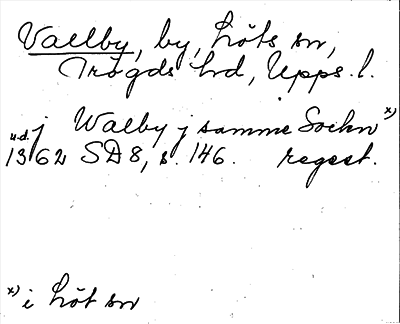 Vallby, by, Löts sn,
Trögds hd, Upps. l.
j Walby j samme Sochn x)
u.d. 1362 SD 8, s. 146. regest.
x) i Löt sn